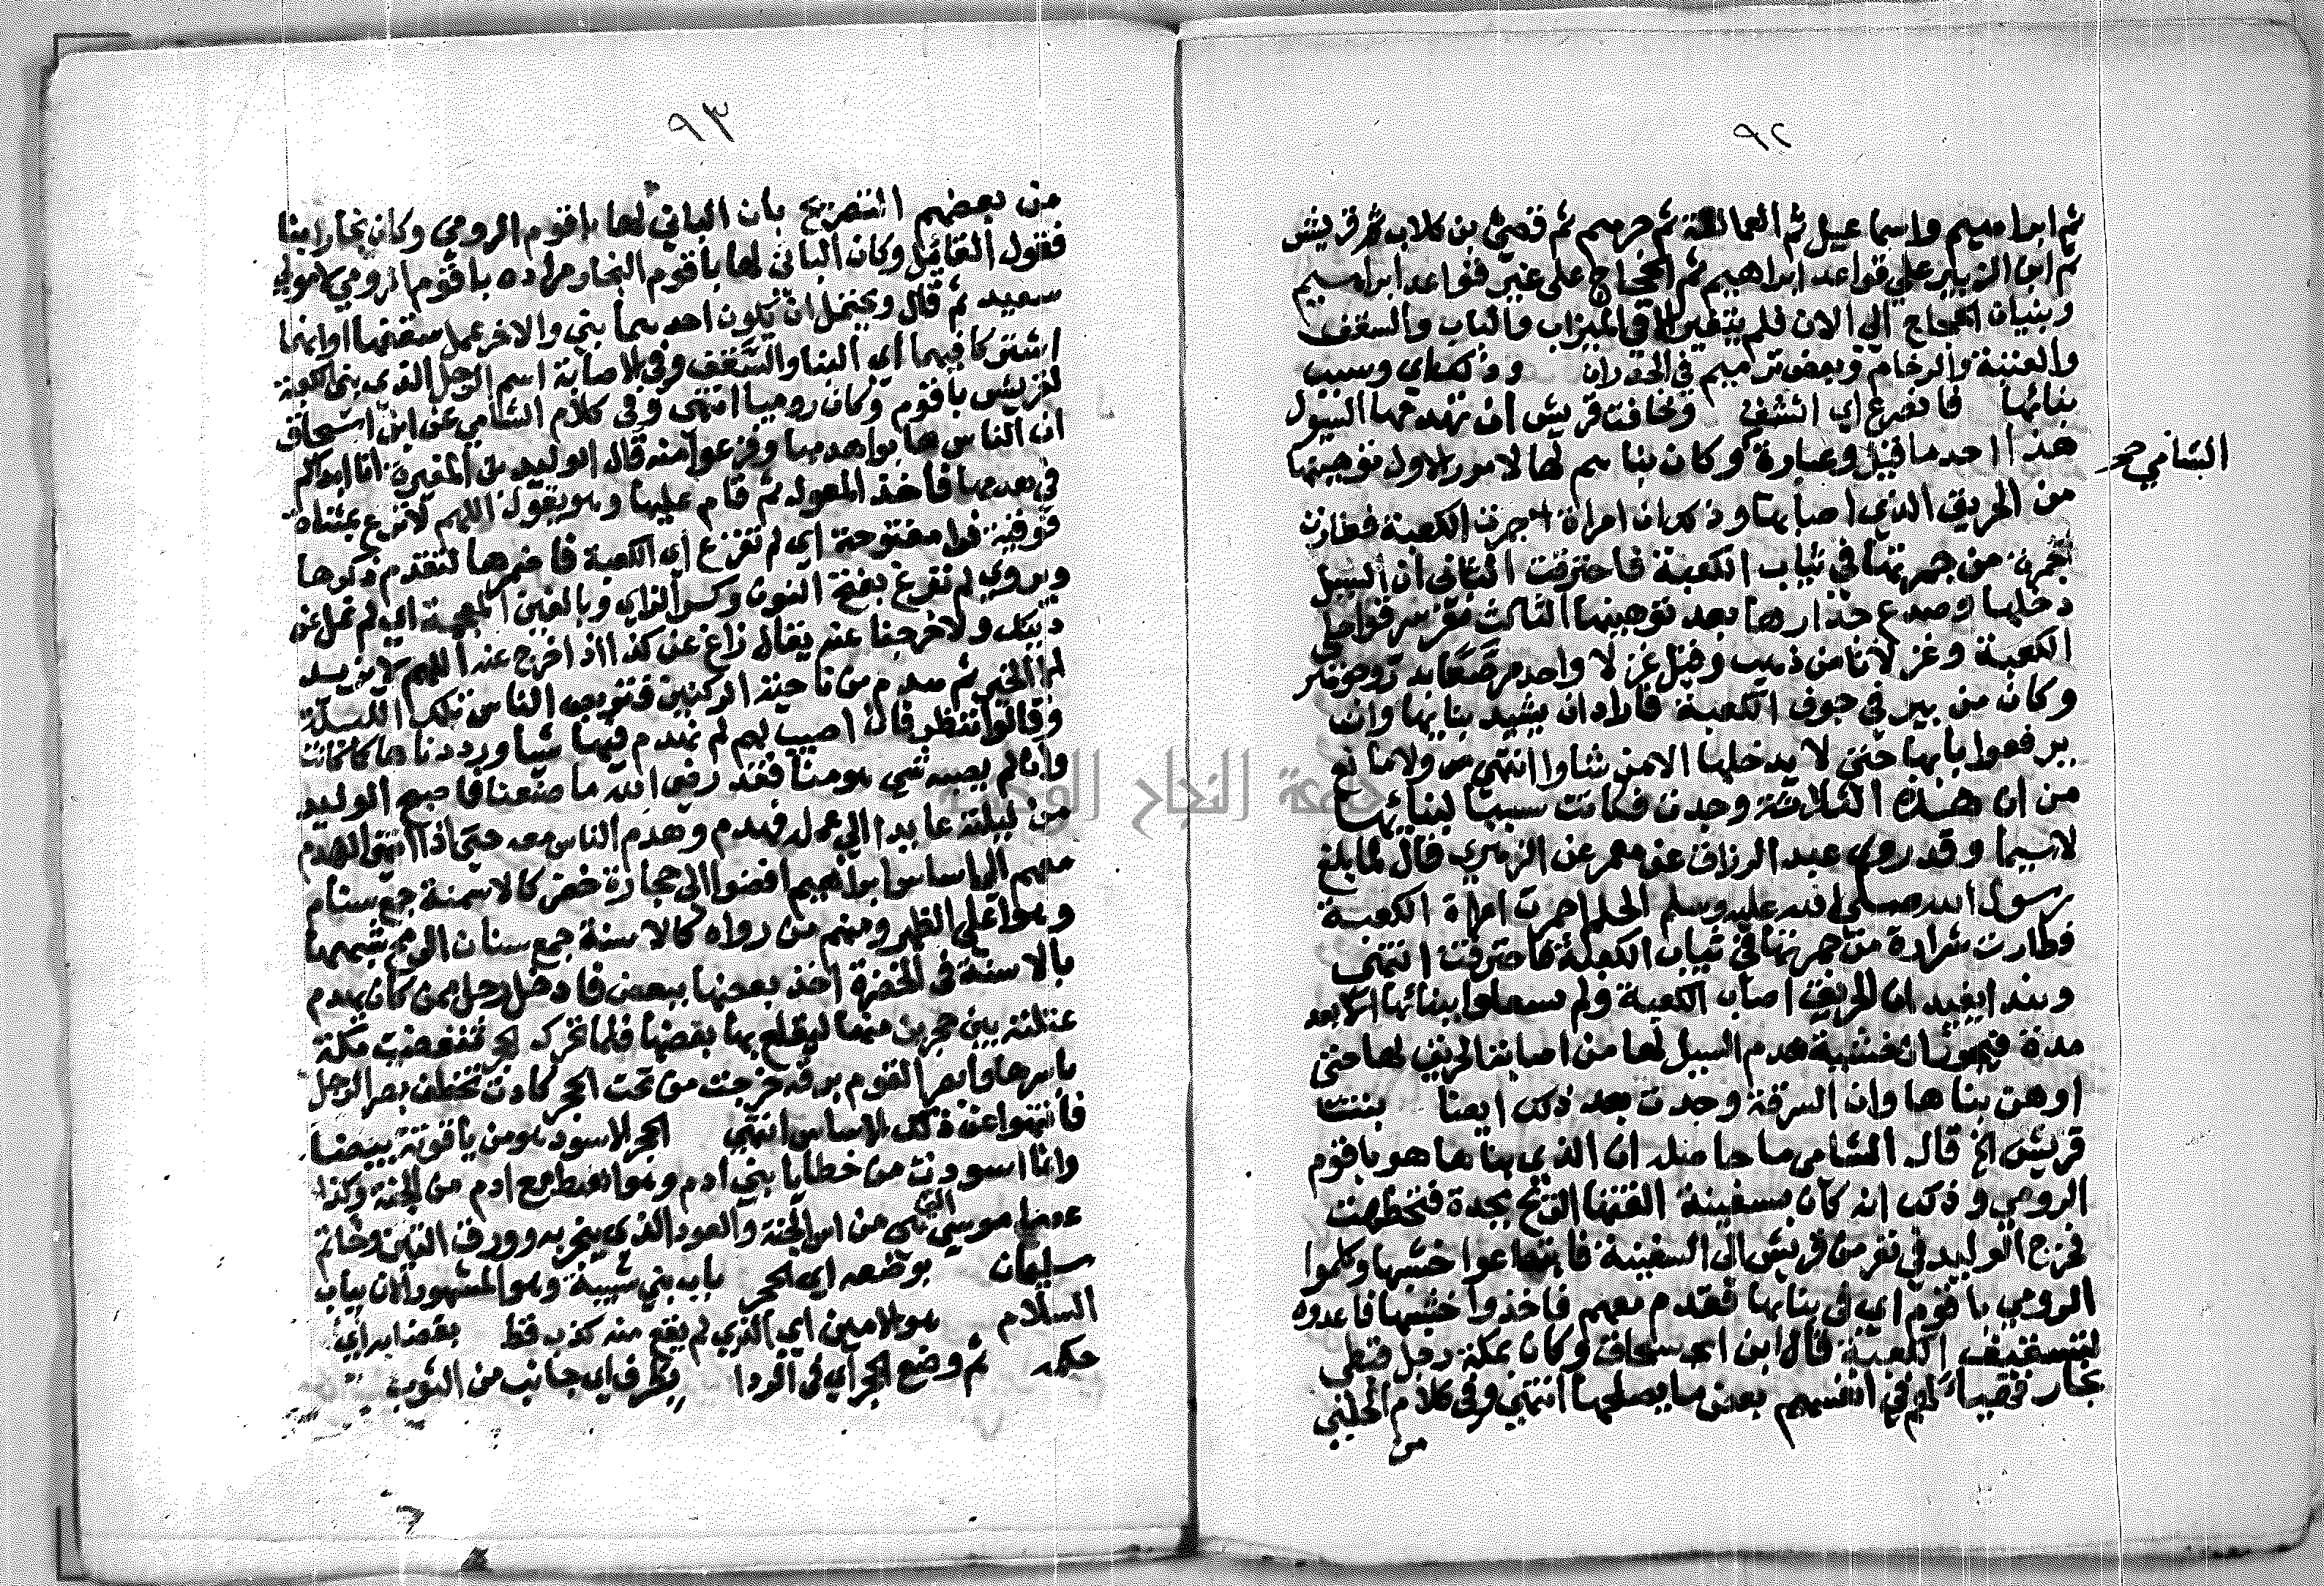 ٩٢
ثم ابراهيم واسماعيل ثم العمالقة ثم جرهم ثم قصي بن كلاب ثم قريش
ثم ابن الزبير علي قواعد ابراهيم ثم الحجاج على غير قواعد ابراهيم
وبنيان الحجاج الي الان فلم يتغير الا في الميزاب والباب والسقف
والعتبة والرخام وبعض ترميم في الجدران وذلك اي وسبب
بنائها فانصدع اي انشق وخافت قريش ان تهدمها السيول
هذا احد ما قيل وعبارة
الشامي
وكان بناءهم لها لامور الاول توهينها
من الحريق الذي اصابها وذلك ان امراة اجمرت الكعبة فطارت
جمرة من جمرتها في ثياب الكعبة فاحترقت الثاني ان السيل
دخلها وصدع جدارها بعد توهينها الثالث نفر سرقوا حلي
الكعبة وغزلانا من ذهب وقيل غزلا واحد مرصعا بدر وجوهر
وكان من بير في جوف الكعبة فارادوا ان يشيد بنايها وان
يرفعوا بابها حتى لا يدخلها الا من شاوا انتهى ولا مانع
من ان هذه الثلاثة وجدت فكانت سببا لبنايها
لاسيما وقد روي عبد الرزاق عن معمر عن الزهري قال لما بلغ
رسول الله صلى الله عليه وسلم الحلم اجمرت امراة الكعبة
فطارت شرارة من جمرتها في ثياب الكعبة فاحترقت انتهى
وهذا يفيد ان الحريق اصاب الكعبة ولم يسعوا ببنائها الا بعد
مدة فيجوز ان خشية هدم السيل لها من اصابة الحريق لها حتى
اوهن بناها وان السرقة وجدت بعد ذلك ايضا بنتها
قريش الخ قال الشامي ما حاصله ان الذي بناها هو باقوم
الرومي وذكر انه كان بسفينة القتها الريح بجدة فتحطمت
فخرج الوليد في نفر من قريش الى السفينة فابتاعوا خشبها وكلموا
الرومي باقوم اي في بنايها فقدم معهم فاخذوا خشبها فاعدوه
لتسقيف الكعبة قال ابن اسحاق وكان بمكة رجل قبطي
نجار فهيأ لهم في انفسهم بعض ما يصلحها انتهي وفي كلام الحلبي
من
٩٣
من بعضهم التصريح بان الباني لها باقوم الرومي وكان نجارا بنا
فقول القائل وكان الباني لها باقوم النجار مراده باقوم الرومي لا مولي
سعيد ثم قال ويحتمل ان تكون احدهما بني والاخر عمل سقفها او انهما
اشتركا فيهما اي البنا والسقف وفي الاصابة اسم الرجل الذي بني الكعبة
لقريش باقوم وكان روميا انتهى وفي كلام الشامي عن ابن اسحاق
ان الناس هابوا هدمها وفزعوا منه قال الوليد بن المغيرة انا ابداكم
في هدمها فاخذ المعول ثم قام عليها وهو يقول اللهم لا تزع بمثناة
فوقية فرا مفتوحة اي لم تفزع اي الكعبة فاضمرها لتقدم ذكرها
ويروي لم نزغ بفتح النون وكسر الزاي وبالغين المعجمة اي لم نمل عن
دينك ولا خرجنا عنه يقال زاغ عن كذا اذا خرج عنه اللهم لا نريد
الا الخير ثم هدم من ناحية الركنين فتربص الناس تلك الليلة
وقالوا ننظر فان اصيب لم نهدم منها شيا ورددناها كما كانت
وان لم يصبه شي هدمنا فقد رضي الله ما صنعنا فاصبح الوليد
من ليلته عايدا الي عمله فهدم وهدم الناس معه حتى اذا انتهى الهدم
منهم الي اساس ابراهيم افضوا الي حجارة خضر كالاسنمة جمع سنام
وهو اعلى الظهر ومنهم من رواه كالاسنة جمع سنان الرمح شبهها
بالاسنة في الخضرة اخذ بعضها ببعض فادخل رجل ممن كان يهدم
عتلته بين حجرين منها ليقلع بها بعضها فلما تحرك الحجر تنفضت مكة
باسرها وابصر القوم برقة خرجت من تحت الحجر كادت تخطف بصر الرجل
فانتهوا عن ذلك الاساس انتهي الحجر الاسود هو من ياقوتة بيضا
وانما اسودت من خطايا بني ادم وهو اهبط مع ادم من الجنة وكذا
عصا موسي التي من اس الجنة والعود الذي يتبخر به وورق التين وخاتم
سليمان بوضعه اي الحجر باب بني شيبة وهو المشهور الان بباب
السلام هو الامين اي الذي لم يقع منه كذب قط بقضا به اي
حكمه ثم وضع الحجر اي في الردا بطرف اي جانب من الثوب
جامعة النجاح الوطنية